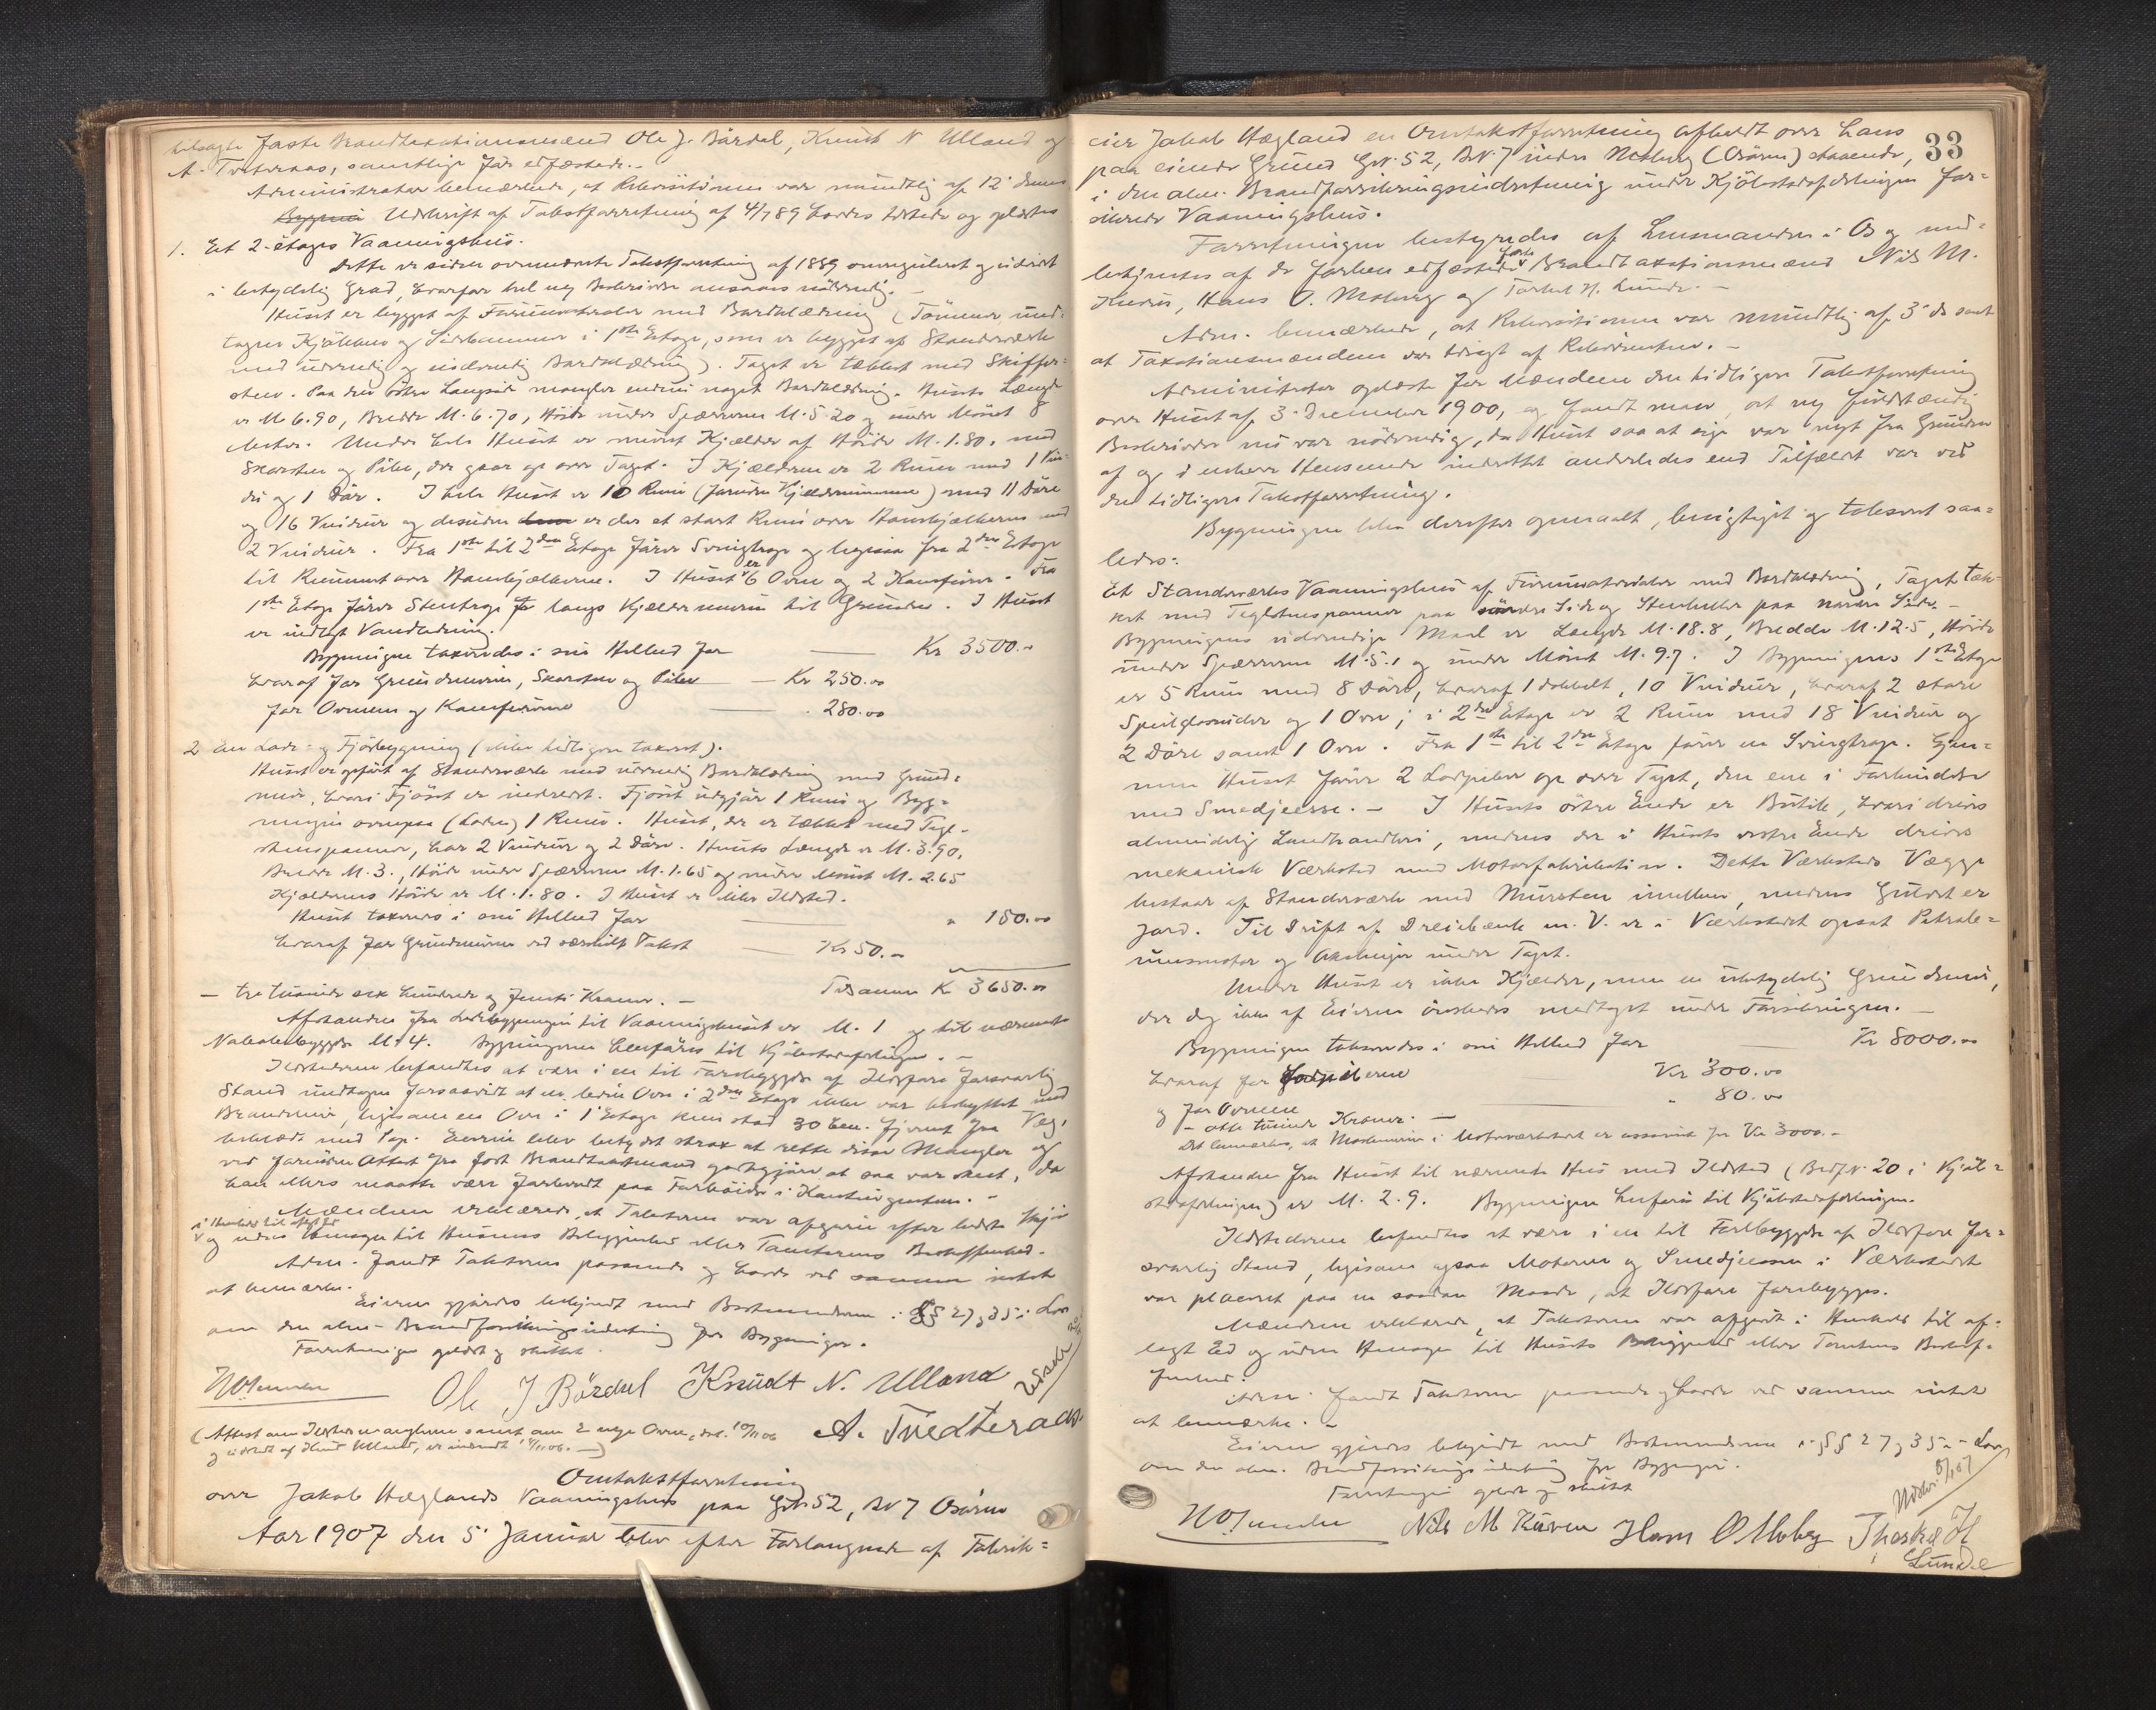 tilsagte faste Brandtaxationsmænd Ole J. Bårdal, Knut N Ulland og
A. Tveteraas, samtlige før edfæstede.-
Administrator bemærkede, at Rekvisitionen var mundtlig af 12' dennes
Udskrift af Takstforretning af 4/7 89 havdes tilstede og oplæstes
1. Et 2-etages Vaaningshus.
Dette er siden ovennævnte Takstforretning af 1889 omreguleret og udvidet
i betydelig Grad, hvorfor hel ny Beskrivelse ansaaes nødvendig. -
Huset er bygget af Furumaterialer med Bordklædning (Tømmer, und-
tagen Kjøkken og Sidekammer i 1ste Etage, som er bygget af Standerværk
med udvendig og indvendig Bordklædning). Taget er tækket med Skiffer-
sten. Paa den østre Langside mangler endnu noget Bordklædning. Husets Længde
er M 6.90, Bredde M. 6.70, Høide under Spærrerne M. 5.20 og under Mønet 8
Meter. Under hele Huset er muret Kjælder af Høide M. 1.80, med
Skorsten og Pibe, der gaar op over Taget. I Kjælderen er 2 Rum med 1 Vin-
du og 1 Dør. I hele Huset er 10 Rum (foruden Kjælderrummene) med 11 Døre
og 16 Vinduer og desuden er der et stort Rum over Hanebjælkerne med
2 Vinduer. Fra 1ste til 2den Etage fører Svingtrap og ligesaa fra 2den Etage
til Rummet over Hanebjælkerne. I Huset er 6 Ovne og 2 Komfurer. Fra
1ste Etage fører Stentrap langs Kjældermuren til Grunden. I Huset
er indlagt Vandledning.
Bygningen taxeredes i sin Helhed for — Kr 3500.-
hvoraf for Grundmuren, Skorsten og Piben — Kr 250.00
for Ovnene og Komfurerne — - 280.00
2 En Lade- og Fjøsbygning (ikke tidligere taxeret).
Huset er opført af Standerværk med udvendig Bordklædning med Grund-
mur, hvori Fjøset er indredet. Fjøset udgjør 1 Rum og Byg-
ningen ovenpaa (Laden) 1 Rum. Huset, der er tækket med Tegl-
stenspanner, har 2 Vinduer og 2 Døre. Husets Længde er M. 3.90,
Bredde M. 3., Høide under Spærrerne M. 1.65 og under Mønet M. 2.65
Kjælderens Høide er M. 1.80. I Huset er ikke Ildsted.
Huset taxeres i sin Helhed for — " 150.00
hvoraf for Grundmuren ved særskilt Takst — Kr 50.-
Tilsammen Kr 3650.00
- tre tusinde sex hundrede og femti Kroner. -
Afstanden fra Ladebygningen til Vaaningshuset er M. 1 og til nærmeste
Nabobebyggelse M. 4. Bygningerne henføres til Kjøbstadafdelingen. -
Ildstederne befandtes at være i en til Forebyggelse af Ildsfare forsvarlig
Stand undtagen forsaavidt at en liden Ovn i 2den Etage ikke var beskyttet med
Brandmur, ligesom en Ovn i 1' Etage kun stod 30 Ctm. fjernet fra Væg,
beklædt med Pap. Eieren blev betydet strax at rette disse Mangler og
ved foruden Attest fra fast Brandtaxtmand godtgjøre at saa var skeet, da
han ellers maatte være forberedt paa Forhøielse i Kontingenten. -
Mændene erklærede, at Taksterne var afgivne efter bedste Skjøn
i Henhold til aflagt Ed
og uden Hensyn til Husenes Beliggenhed eller Tomternes Beskaffenhed.
Adm. fandt Taksterne passende og havde ved samme intet
at bemærke.
Eieren gjordes bekjendt med Bestemmelserne i §§ 27, 35 i Lov
om den alm. Brandforsikringsindretning for Bygninger.
Forretningen oplæst og sluttet.
Ole J Bårdal Knudt N. Ulland
A. Tvedteraas.
(Attest om Ildstedsmanglerne samt om 2 nye Ovne, dat. 10/11 06
og udstedt af Knud Ulland, er indsendt 12/11 06. -)
Omtakstforretning
over Jakob Hæglands Vaaningshus paa Gr. 52, Bn 7 Osøren
Aar 1907 den 5' Januar blev efter Forlangende af Fabrik-
33
eier Jakob Hægland en Omtakstforretning afholdt over hans
paa eiende Grund Gr. 52, Br. 7 indre Moberg (Osøren) staaende,
i den alm. Brandforsikringsindretning under Kjøbstadafdelingen for-
sikrede Vaaningshus.
Forretningen bestyredes af Lensmanden i Os og med-
betjentes af de forhen edfæstede faste Brandtaxationsmænd Nils M.
Kuven, Hans O. Moberg og Torkel H. Lunde. -
Adm. bemærkede, at Rekvisitionen var mundtlig af 3' ds samt
at Taxationsmændene var tilsagt af Rekvirenten. -
Administrator oplæste for Mændene den tidligere Takstforretning
over Huset af 3' December 1900, og fandt man, at ny fuldstændig
Beskrivelse nu var nødvendig, da Huset saa at sige var nyt fra Grunden
af og i enhver Henseende indrettet anderledes end Tilfældet var ved
den tidligere Takstforretning.
Bygningen blev derefter opmaalt, besigtiget og takseret saa-
ledes:
Et Standerværks Vaaningshus af Furumaterialer med Bordklædning, Taget tæk-
ket med Teglstenspanner paa søndre Side og Stenheller paa nordre Side. -
Bygningens udvendige Maal er Længde M. 18.8, Bredde M. 12.5, Høide
under Spærrerne M. 5.1 og under Mønet M. 9.7. I Bygningens 1ste Etage
er 5 Rum med 8 Døre, hvoraf 1 dobbelt, 10 Vinduer, hvoraf 2 store
Speilglasruder og 1 Ovn; i 2den Etage er 2 Rum med 18 Vinduer og
2 Døre samt 1 Ovn. Fra 1ste til 2den Etage fører en Svingtrap. Gjen-
nem Huset fører 2 Lodpiber op over Taget, den ene i Forbindelse
med Smedjeesse. - I Husets østre Ende er Butik, hvori drives
almindelig Landhandleri, medens der i Husets vestre Ende drives
mekanisk Værksted med Motorfabrikation. Dette Værksteds Vægge
bestaar af Standerværk med Mursten imellem, medens Gulvet er
Jord. Til Drift af Dreiebænk m. V. er i Værkstedet opsat Petrole-
umsmotor og Akslinger under Taget.
Under Huset er ikke Kjælder, men en ubetydelig Grundmur,
der dog ikke af Eieren ønskedes medtaget under Forsikringen. -
Bygningen takseredes i sin Helhed for — Kr 8000.00
hvoraf for Lodpiberne Kr 300.00
og for Ovnene — " 80.00
- otte tusinde Kroner. -
Det bemærkes, at Maskineriet i Motorværkstedet er assureret for Kr 3000.-
Afstanden fra Huset til nærmeste Hus med Ildsted (Brdf. N. 20 i Kjøb-
stadafdelingen) er M. 2.9. Bygningen henføres til Kjøbstadafdelingen.
Ildstederne befandtes at være i en til Forebyggelse af Ildsfare for-
svarlig Stand, ligesom ogsaa Motoren og Smedjeessen i Værkstedet
var placeret paa en saadan Maade, at Ildsfare forebygges.
Mændene erklærede, at Taksterne var afgivet i Henhold til af-
lagt Ed og uden Hensyn til Husets Beliggenhed eller Tomtens Beskaf-
fenhed.
Adm. fandt Taksterne passende og havde ved samme intet
at bemærke. -
Eieren gjordes bekjendt med Bestemmelserne i §§ 27, 35 i Lov
om den alm. Brandforsikringsindretning for Bygninger.
Forretningen oplæst og sluttet
Nils M Kuven Hans O Moberg Thorkel H
Lunde